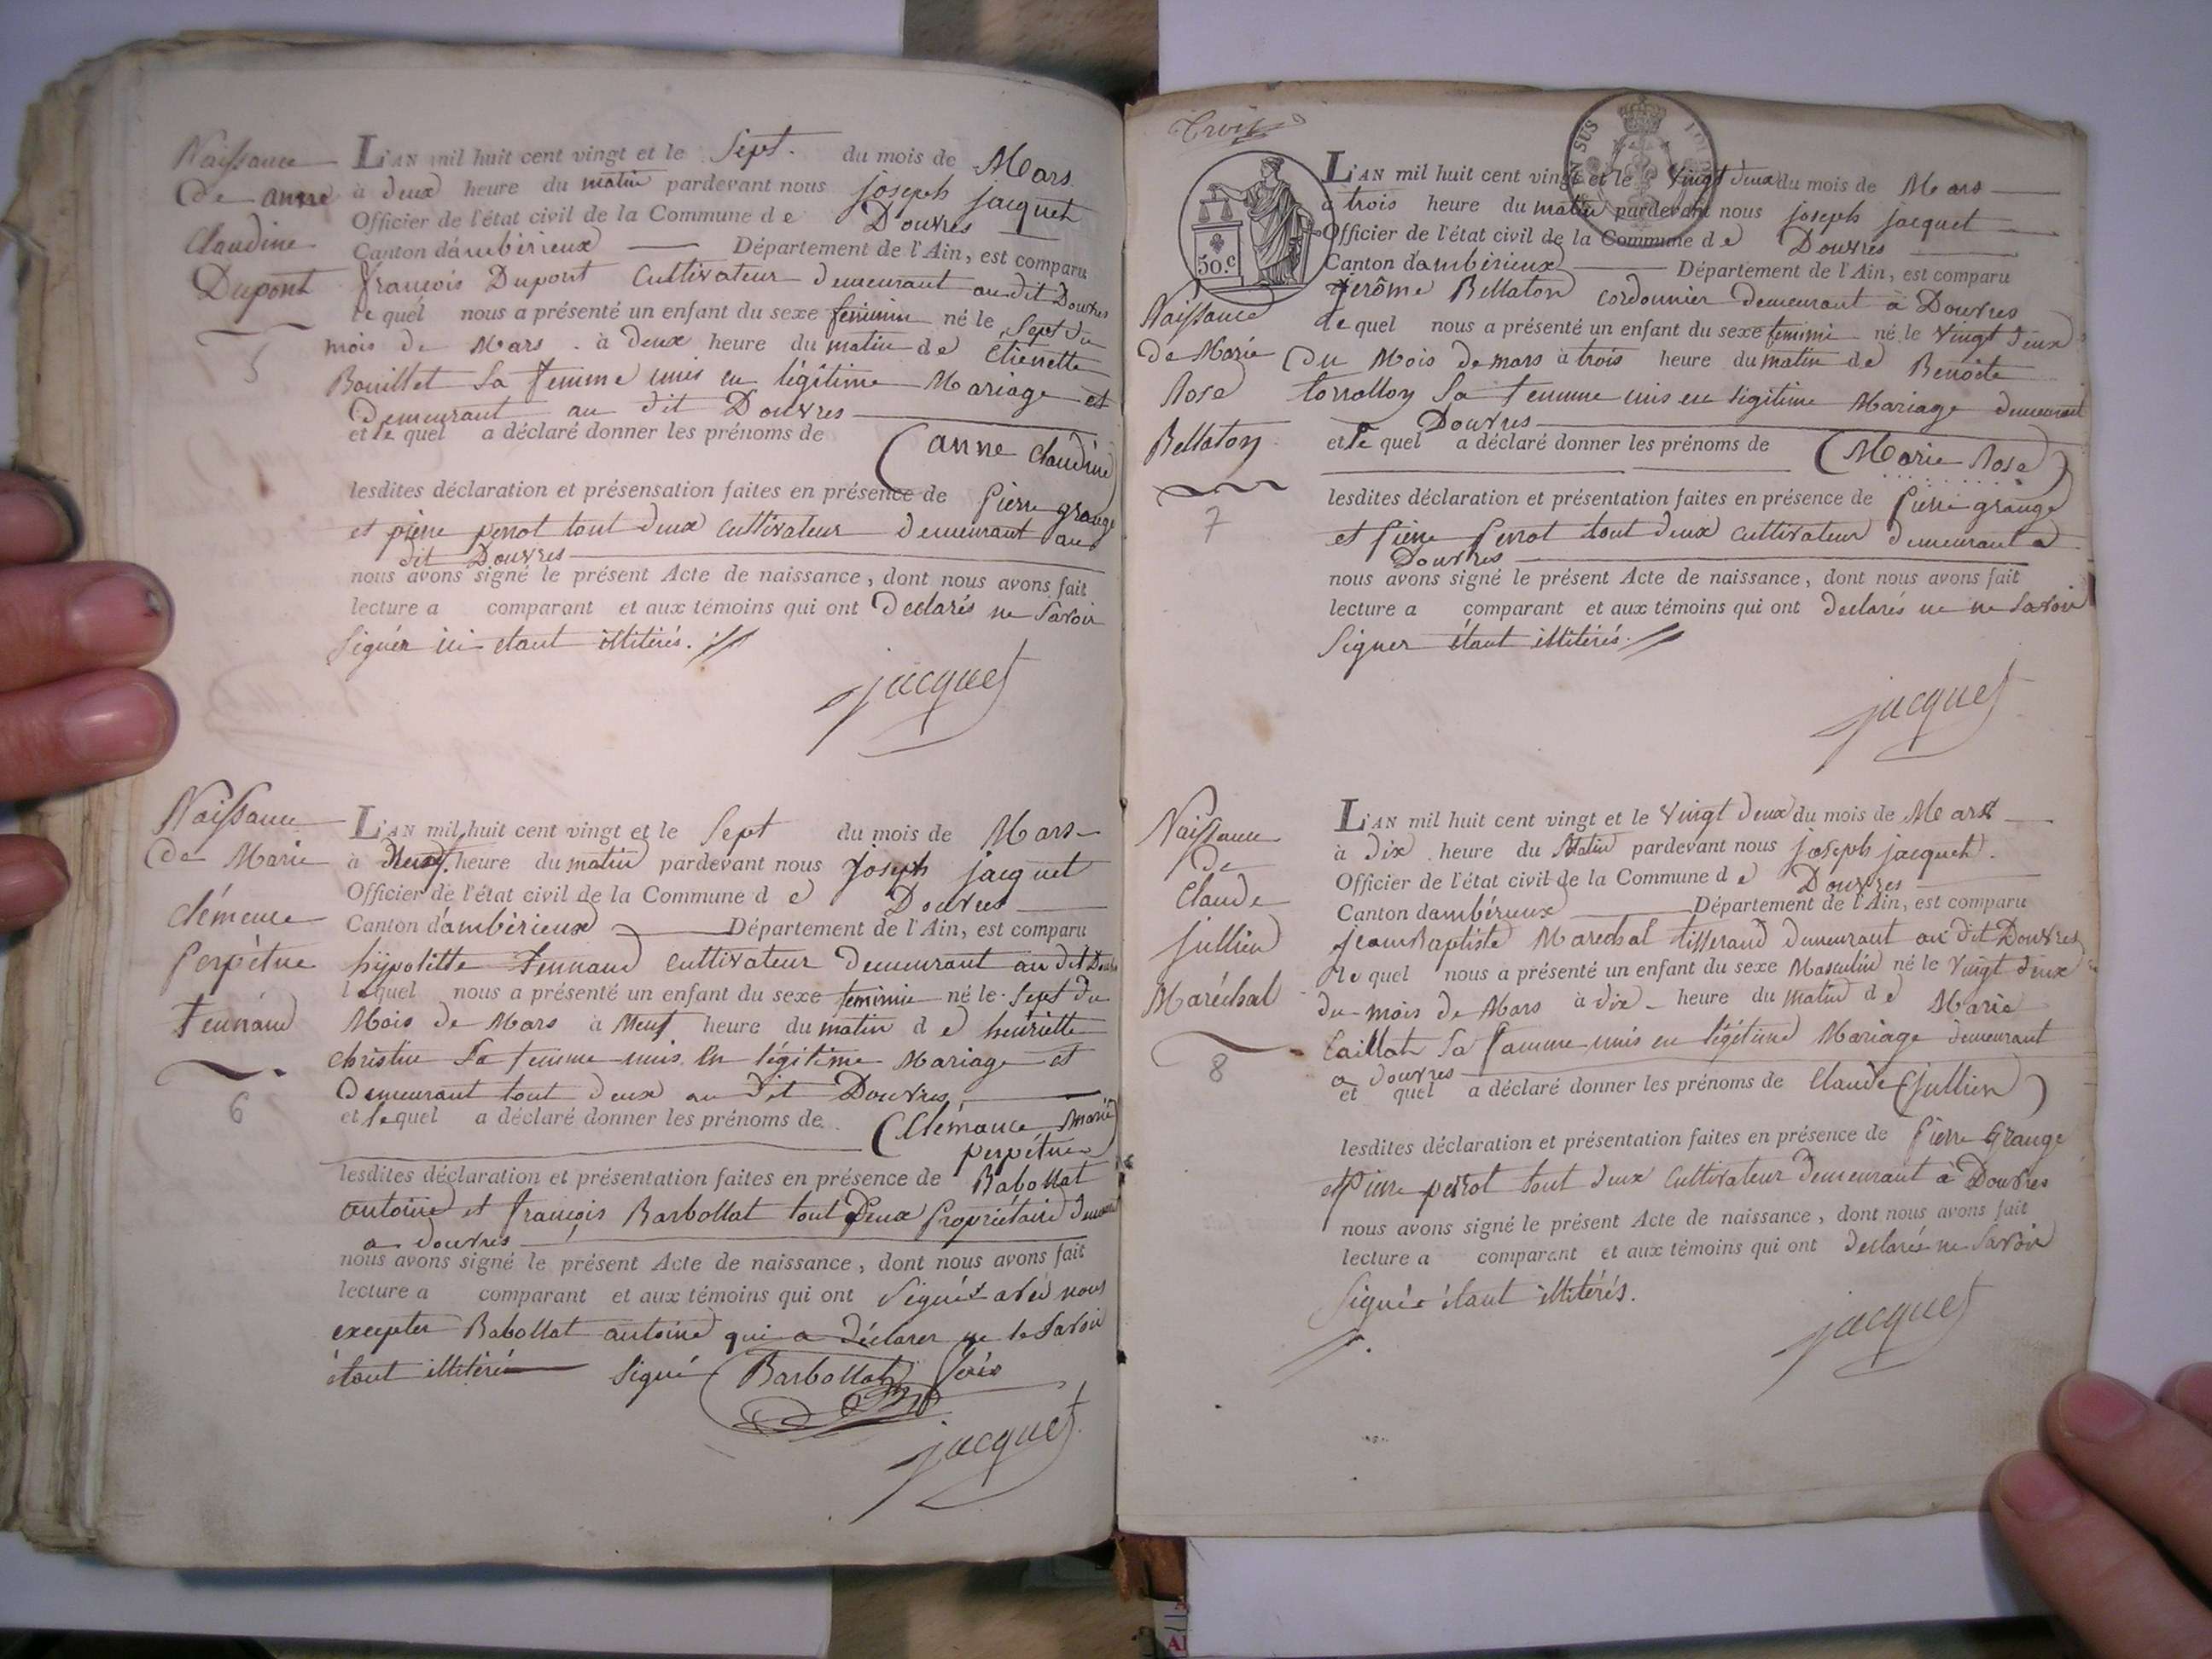 Naissance
de anne
Claudine
Dupont
5
L'AN mil huit cent vingt et le Sept. du mois de Mars
à deux heure du matin pardevant nous joseph jacquet
Officier de l'état civil de la Commune d e Douvres
Canton d'ambérieux Département de l'Ain, est comparu
françois Dupont Cultivateur demeurant au dit Douvres
le quel nous a présenté un enfant du sexe feminin né le Sept du
mois de Mars . à deux heure du matin de etienette
Bouillet Sa femme unis en légitime Mariage et
Demeurant au dit Douvres
et le quel a déclaré donner les prénoms de (anne Claudine)
lesdites déclaration et présensation faites en présence de Pierre grange
et pierre perrot tout deux cultivateur demeurant au
dit Douvres
nous avons signé le présent Acte de naissance, dont nous avons fait
lecture a comparant et aux témoins qui ont Declarés ne Savoir
Signér ici etant illitérés.
jacquet
Naissance
de Marie
clémence
Perpétue
Tennand
6
L'AN mil huit cent vingt et le Sept du mois de Mars
à Neuf heure du matin pardevant nous joseph jacquet
Officier de l'état civil de la Commune d e Douvres
Canton d'ambérieux Département de l'Ain, est comparu
hypolitte Tennand cultivateur Demeurant au dit Douvres
lequel nous a présenté un enfant du sexe feminin né le Sept du
Mois de Mars à Neuf heure du matin d e henriette
christin Sa femme unis en légitime Mariage et
Demeurant tout deux au dit Douvres
et lequel a déclaré donner les prénoms de (Clémance Marie
perpétue)
lesdites déclaration et présentation faites en présence de Babollat
antoine et françois Barbollat tout deux Propriétaire
a douvres
nous avons signé le présent Acte de naissance, dont nous avons fait
lecture a comparant et aux témoins qui ont Signés avec nous
excepter Babollat antoine qui a déclarer ne le Savoir
étant illitéré Signé Barbollat fois
jacquet
Trois
50.c
Naissance
de Marie
Rose
Bellaton
7
L'AN mil huit cent vingt et le vingt deux du mois de Mars
à trois heure du matin pardevant nous joseph jacquet
Officier de l'état civil de la Commune d e Douvres
Canton d'ambérieux Département de l'Ain, est comparu
Jerôme Bellaton cordonnier demeurant à Douvres
le quel nous a présenté un enfant du sexe feminin né le vingt deux
du Mois de mars à trois heure du matin de Benoite
torrollon Sa femme unis en légitime Mariage demeurant
Douvres
et le quel a déclaré donner les prénoms de (Marie Rose)
lesdites déclaration et présentation faites en présence de Pierre grange
et Pierre Perrot tout deux cultivateur demeurant a
Douvres
nous avons signé le présent Acte de naissance, dont nous avons fait
lecture a comparant et aux témoins qui ont declarés ne ne Savoir
Signer étant illitérés.
jacquet
Naissance
de
Claude
jullien
Maréchal
8
L'AN mil huit cent vingt et le vingt deux du mois de Mars
à dix heure du Matin pardevant nous joseph jacquet.
Officier de l'état civil de la Commune d e Douvres
Canton dambérieux Département de l'Ain, est comparu
jeanBaptiste Marechal tisserand demeurant au dit Douvres
le quel nous a présenté un enfant du sexe Masculin né le vingt deux
du mois de Mars à dix heure du matin d e Marie
Caillat Sa famme unis en légitime Mariage demeurant
a douvres
et quel a déclaré donner les prénoms de Claude (jullien)
lesdites déclaration et présentation faites en présence de Pierre Grange
et Pierre perrot tout deux Cultivateur demeurant à Douvres
nous avons signé le présent Acte de naissance, dont nous avons fait
lecture a comparant et aux témoins qui ont declarés ne Savoir
Signér étant illitérés.
jacquet